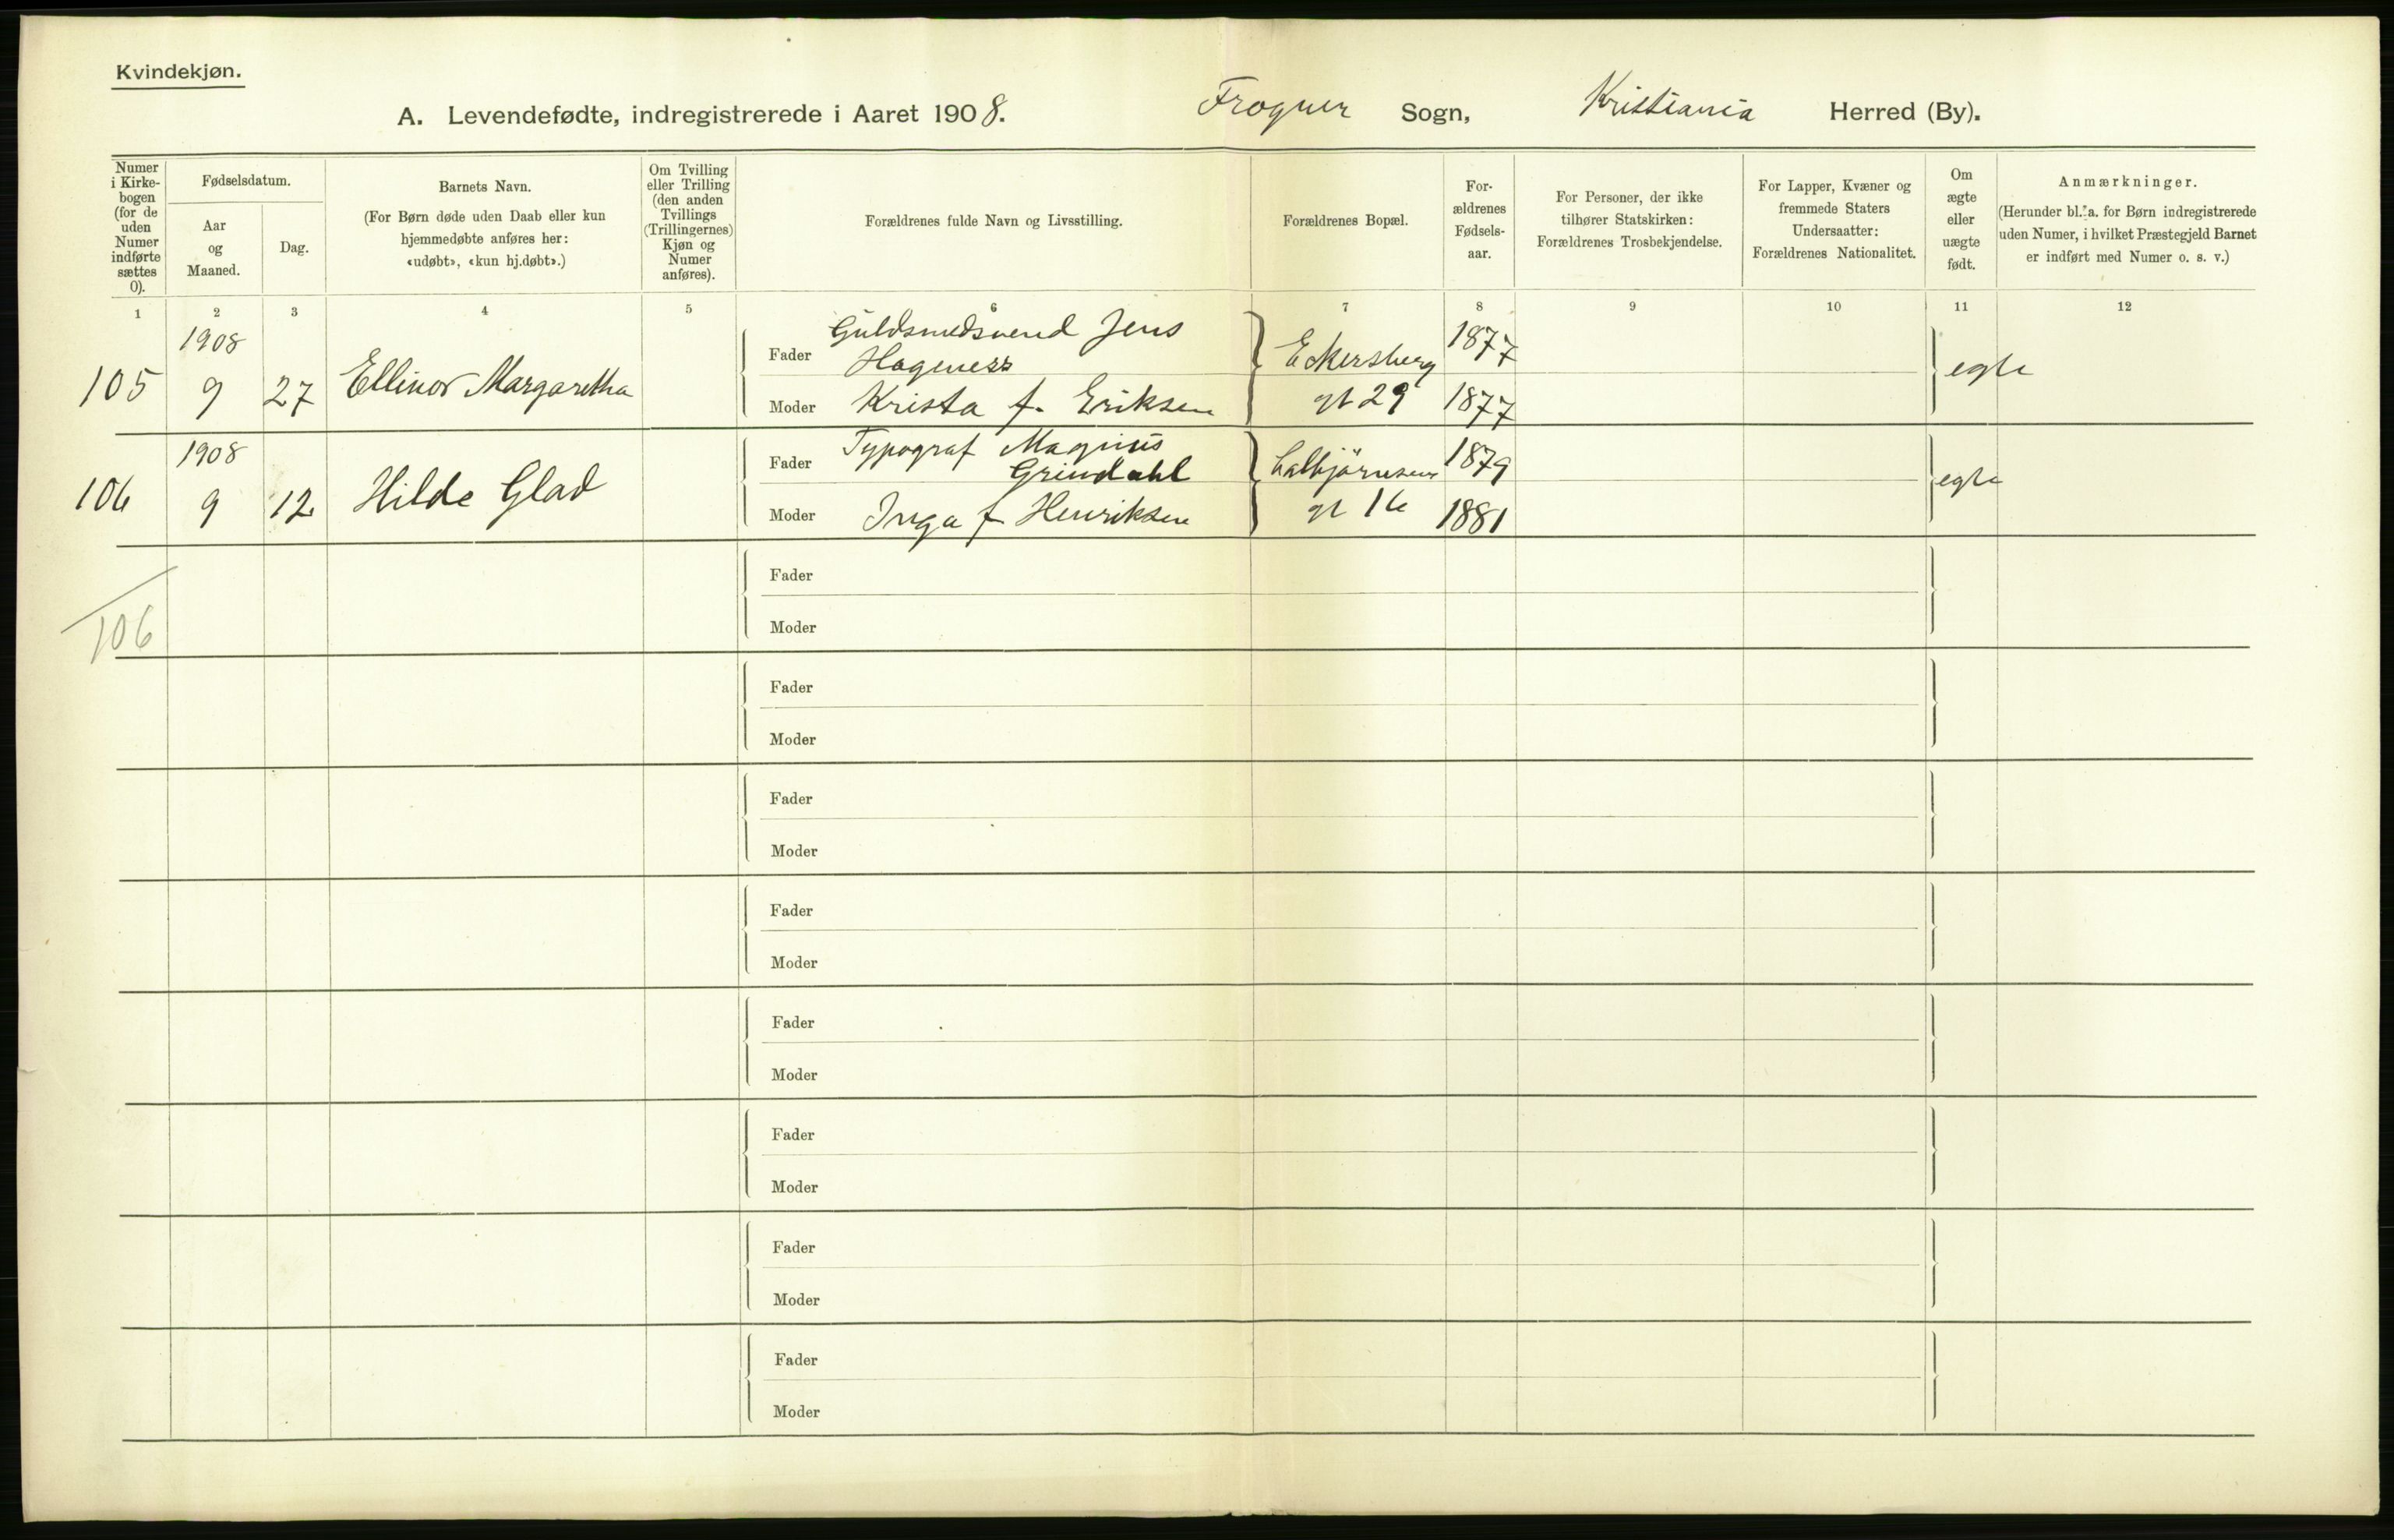 Kvindekjøn.
A. Levendefødte, indregistrerede i Aaret 1908. Frogner Sogn, Kristiania Herred (By).
Numer i Kirke-bogen (for de uden Numer indførte sættes 0).
Fødselsdatum.
Aar og Maaned.
Dag.
Barnets Navn.
(For Børn døde uden Daab eller kun
hjemmedøbte anføres her:
«udøbt», «kun hj.døbt».)
Om Tvilling
eller Trilling
(den anden
Tvillings
(Trillingernes)
Kjøn og
Numer
anføres).
Forældrenes fulde Navn og Livsstilling.
Forældrenes Bopæl.
For-
ældrenes
Fødsels-
aar.
For Personer, der ikke
tilhører Statskirken:
Forældrenes Trosbekjendelse.
For Lapper, Kvæner og
fremmede Staters
Undersaatter:
Forældrenes Nationalitet.
Om
ægte
eller
uægte
født.
Anmærkninger.
(Herunder bl. a. for Børn indregistrerede
uden Numer, i hvilket Præstegjeld Barnet
er indført med Numer o. s. v.)
1 2 3 4 5 6 7 8 9 10 11 12
1908
105 9 27 Ellinor Margaretha
Fader Guldsmedsvend Jens
Hageness
Moder Krista f. Eriksen
Eckersberg
gt 29
1877
1877
egte
1908
106 9 12 Hilde Glad
Fader Typograf Magnus
Grindahl
Moder Inga f Henriksen
Colbjörnsens
gt 16
1879
1881
egte
106
Fader
Moder
Fader
Moder
Fader
Moder
Fader
Moder
Fader
Moder
Fader
Moder
Fader
Moder
Fader
Moder